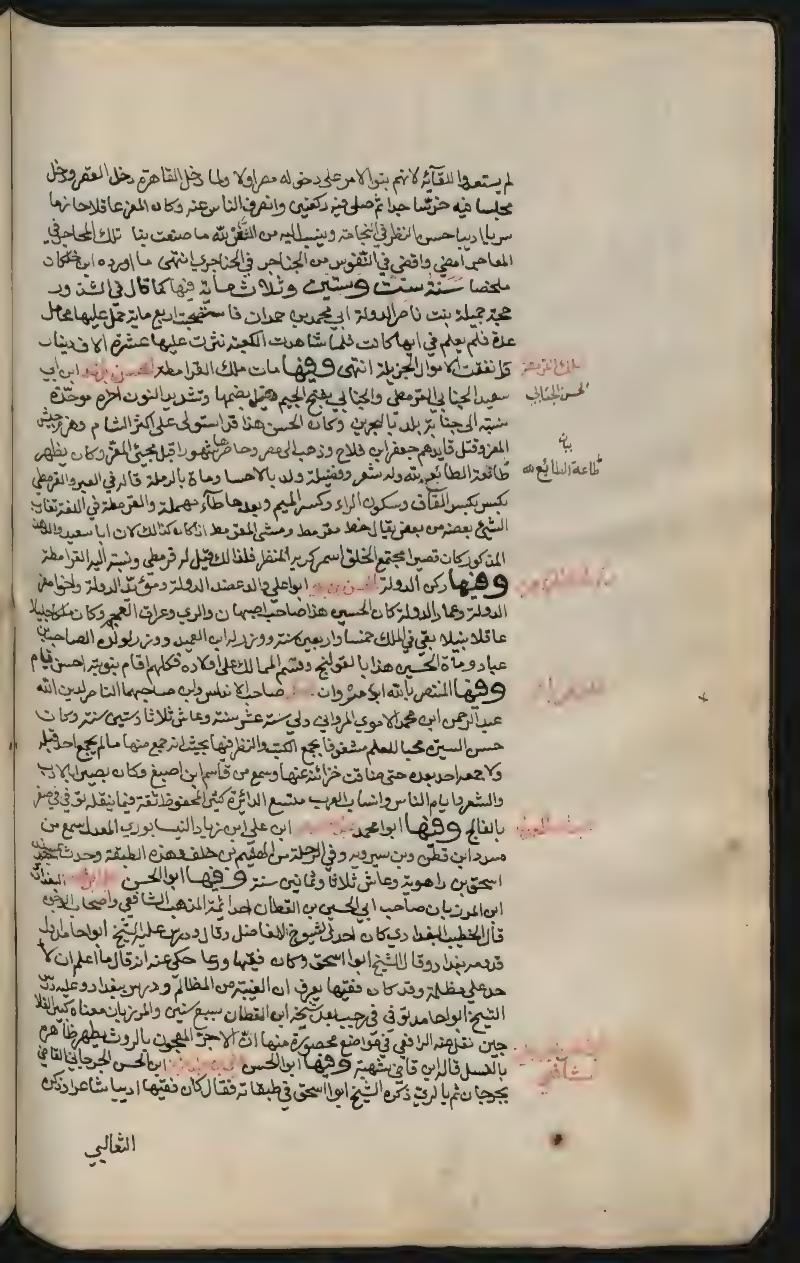 لم يستعدوا للقآئه لانهم بنوا الامر على دخوله مصر اولا ولما دخل القاهرة دخل القصر ودخل
مجلسا فيه خر ساجدا ثم صلى فيه ركعتين وانصرف الناس عنه وكان المعز عاقلا حازما
سريا اديبا حسن النظر في النجامة وينسب اليه من الشعر لله ما صنعت بنا تلك المحاجر في
المعاجر امضى واقضى في النفوس من الخناجر في الحناجر انتهى ما اورده ابن خلكان
ملخصا سنة ست وستين وثلاث مائة فيها كما قال في الشذور
حجة جميلة بنت ناصر الدولة ابي محمد بن حمدان فاستصحبت اربع ماية جمل عليها محامل
عدة فلم يعلم في ايها كانت فلما شاهدت الكعبة نثرت عليها عشرة الاف دينار
وانفقت الاموال الجزيلة انتهى وفيها مات ملك القرامطة الحسن بن احمد ابن ابي
سعيد الجنابي القرمطي والجنابي بفتح الجيم وقيل بضمها وتشديد النون اخره موحدة
نسبة الى جنابة بلد بالبحرين وكان الحسن هذا قد استولى على اكثر الشام وهزم جيش
المعز وقتل قايدهم جعفر ابن فلاح وذهب الى مصر وحاصرها شهورا قبل مجيئ المعز وكان يظهر
طاعة الطائع لله وله شعر وفضيلة ولد بالاحسا ومات بالرملة قاله في العبر والقرمطي
بكسر القاف وسكون الراء وكسر الميم وبعدها طآء مهملة والقرمطة في اللغة تقارب
الشئ بعضه من بعض يقال خط مقرمط ومشى مقرمط اذا كان كذلك لان ابا سعيد والد هذا
المذكور كان قصيرا مجتمع الخلق اسمر كريه المنظر فلذلك قيل له قرمطي ونسبة اليه القرامطة
وفيها ركن الدولة الحسن بن بويه ابوا علي والد عضد الدولة ومؤيد الدولة واخو معز
الدولة وعماد الدولة كان الحسين هذا صاحب اصبهان والري وعراق العجم وكان ملكا جليلا
عاقلا نبيلا بقي في الملك خمسا واربعين سنة ووزر له ابن العميد ووزر لولده الصاحب بن
عباد ومات الحسين هذا بالقولنج وقسم الممالك على اولاده فكلهم اقام بنوبته احسن قيام
وفيها المنتصر بالله ابو مروان صاحب الاندلس وابن صاحبها الناصر لدين الله
عبد الرحمن ابن محمد الاموي المرواني ولي ستة عشر سنة وعاش ثلاثا وستين سنة وكان
حسن السيرة محبا للعلم مشغوفا بجمع الكتب والنظر فيها بحيث انه جمع منها ما لم يجمع احد قبله
ولا جمعه احد بعده حتى ضاقت خزائنه عنها وسمع من قاسم ابن اصبغ وكان بصيرا بالادب
والشعر وايام الناس وانساب العرب متسع الدائرة كثير المحفوظ ثقة فيما ينقله توفي في صفر
بالفالج وفيها ابوا محمد ابن علي ابن زياد النيسابوري المعدل سمع من
مسدد ابن قطن وبن سيرويه وفي الرحلة من الهيثم بن خلف وهذه الطبقة وحدث بمسند
اسحق بن راهوية وعاش ثلاثا وثمانين سنة وفيها ابوا الحسن البغدادي
ابن المرزبان صاحب ابي الحسين بن القطان احد ائمة المذهب الشافعي واصحاب الوجوه
قال الخطيب البغدادي كان احد الشيوخ الافاضل وقال ودرس عليه الشيخ ابوا حامد اول
قدومه بغداد وقال الشيخ ابوا اسحق وكان فقيها ورعا حكي عنه انه قال ما اعلم ان لا
حد علي مظلمة وقد كان فقيها يعرف ان الغيبة من المظالم ودرس ببغداد وعليه درس
الشيخ ابوا حامد توفي في رجب بعد شيخه ابن القطان سبع سنين والمرزبان معناه كبير الفلا
حين نقل عنه الرافعي في مواضع محصورة منها ان الاجر المعجون بالروث يطهر ظاهره
بالغسل قاله ابن قاضي شهبة وفيها ابوا الحسن ابن الحسن الجرجاني القاضي
بجرجان ثم بالري ذكره الشيخ ابوا اسحق في طبقاته فقال كان فقيها اديبا شاعرا ذكره
الثعالبي
ملك القرامطة
الحسن الجنابي
بيان
طاعة الطائع لله